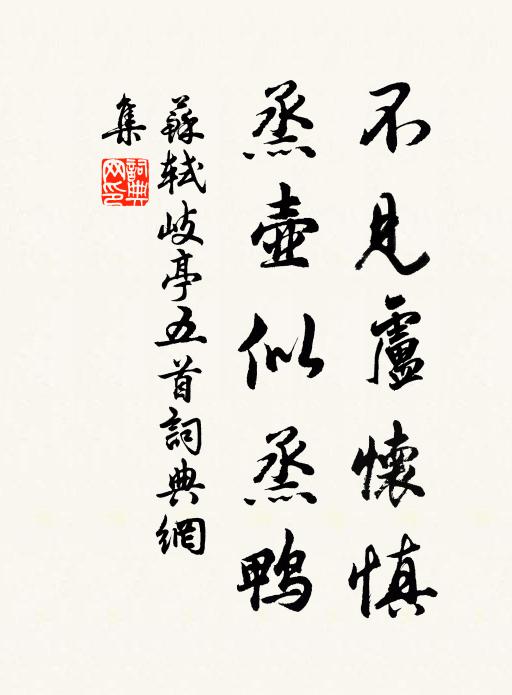 不見盧懷慎
蒸壺似蒸鴨
蘇軾岐亭五首詞典網
集
詞典網印